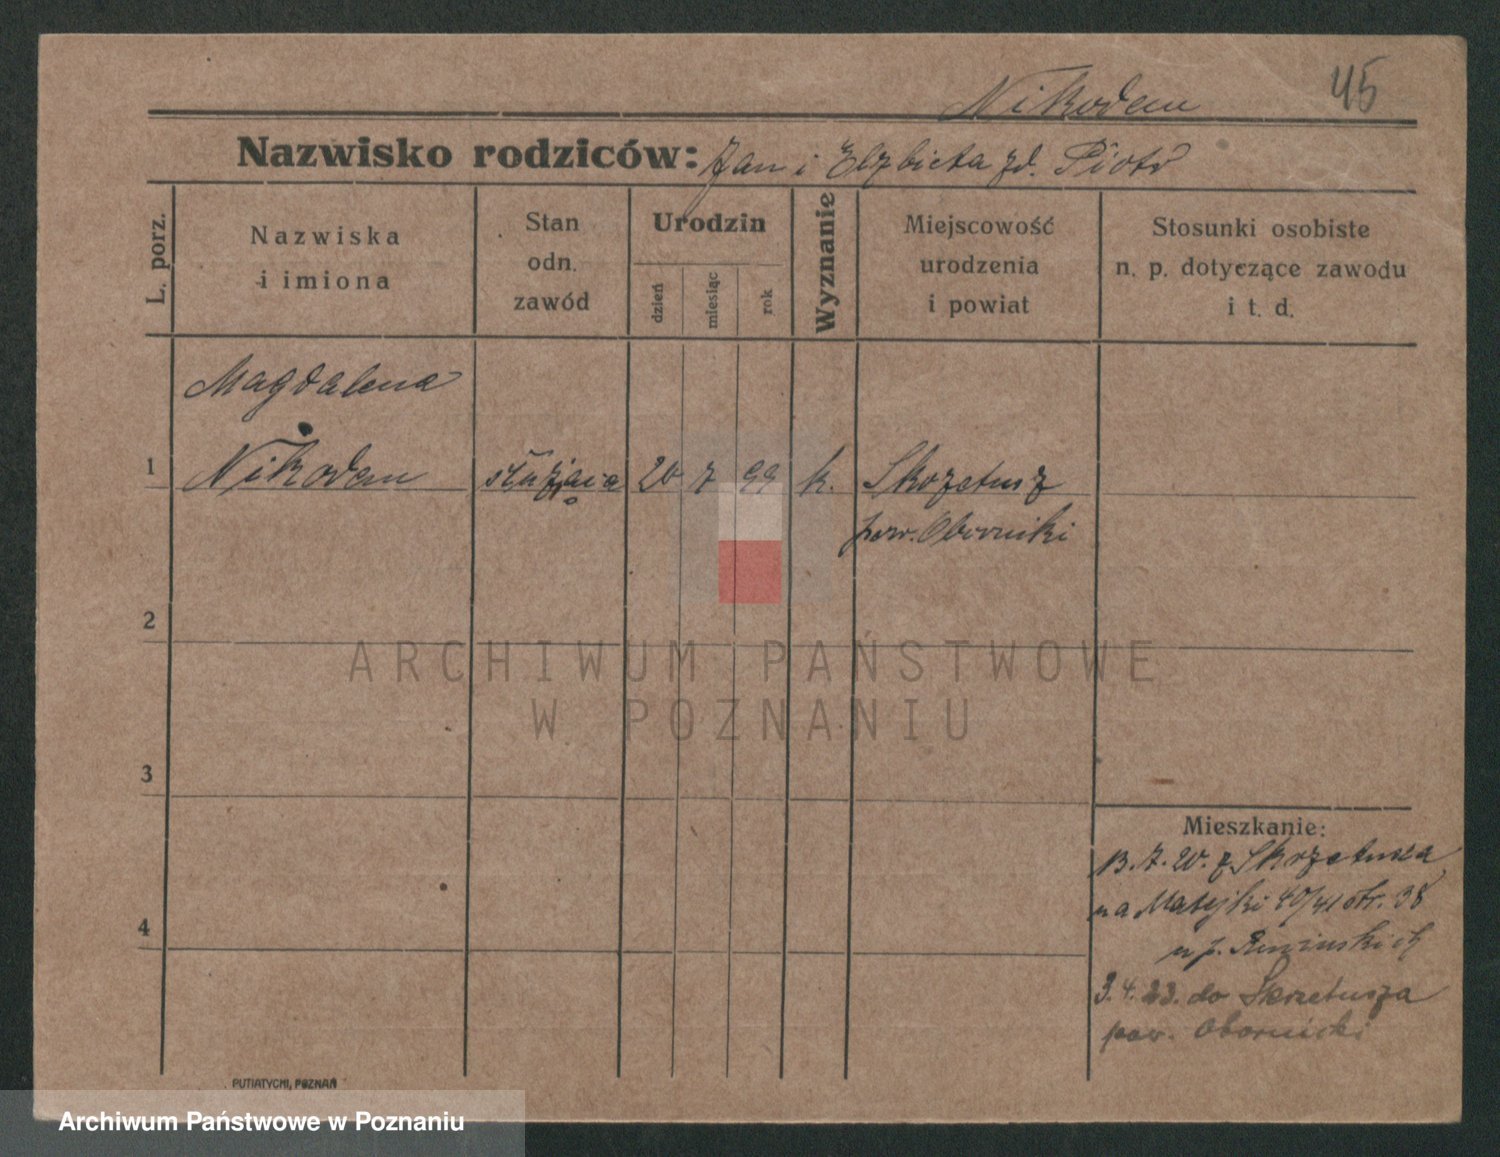 Nikodem
45
Nazwisko rodziców: Jan i Elzbieta zd. Piotr
L. porz.
Nazwiska
i imiona
Stan
odn.
zawód
Urodzin
dzień
miesiąc
rok
Wyznanie
Miejscowość
urodzenia
i powiat
Stosunki osobiste
n. p. dotyczące zawodu
i t. d.
Magdalena
1 Nikodem służąca 20 7 99 k. Skrzetusz
pow. Oborniki
2
3
4
ARCHIWUM PAŃSTWOWE
W POZNANIU
Mieszkanie:
13.7.20. z Skrzetusza
na Matejki 40/41 str. 38
u p.
3.4.23. do Skrzetusza
pow. Obornicki
PUTIATYCKI, POZNAŃ
Archiwum Państwowe w Poznaniu